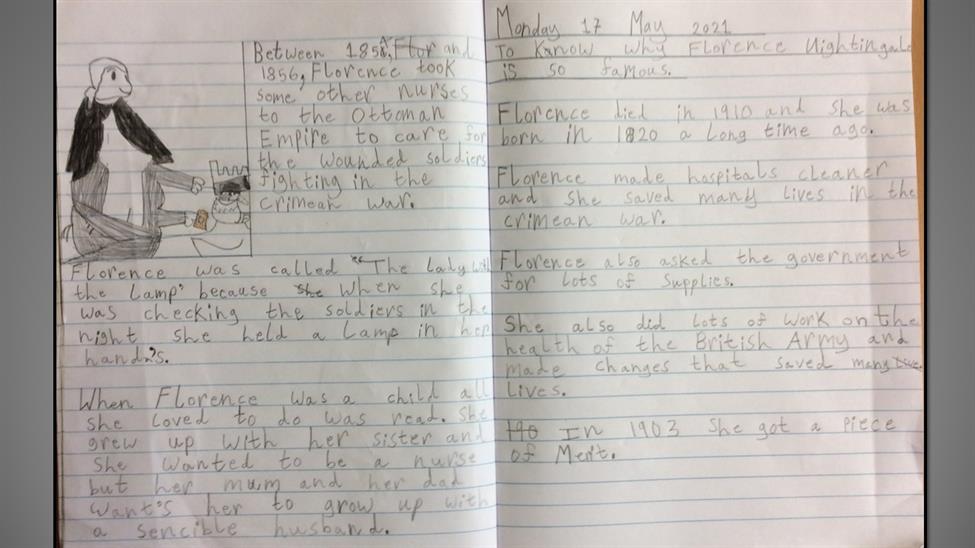 Between 185⁠4, Flor and
1856, Florence took
some other nurses
to the Ottoman
Empire to care for
the wounded soldiers
fighting in the
crimean war.
Florence was called "The Lady with
the Lamp" because she when she
was checking the soldiers in the
night she held a Lamp in her
hand's.
When Florence was a child all
she loved to do was read. She
grew up with her sister and
she wanted to be a nurse
but her mum and her dad
want's her to grow up with
a sencible husband.
Monday 17 May 2021
To know why Florence Nightingale
is so famous.
Florence died in 1910 and she was
born in 1820 a long time ago.
Florence made hospitals cleaner
and she saved many lives in the
crimean war.
Florence also asked the government
for lots of supplies.
She also did lots of work on the
health of the British Army and
made changes that saved many
lives.
190 In 1903 she got a piece
of Merit.